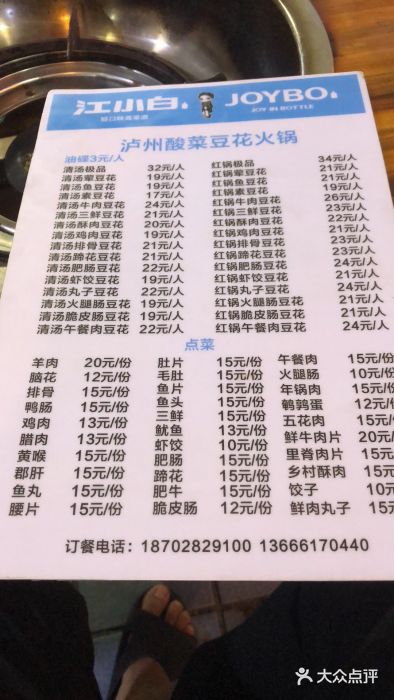 江小白 JOYBO
轻口味高粱酒 JOY IN BOTTLE
泸州酸菜豆花火锅
油碟3元/人
清汤极品 32元/人 红锅极品 34元/人
清汤荤豆花 19元/人 红锅荤豆花 21元/人
清汤鱼豆花 19元/人 红锅鱼豆花 21元/人
清汤素豆花 17元/人 红锅素豆花 19元/人
清汤牛肉豆花 24元/人 红锅牛肉豆花 26元/人
清汤三鲜豆花 21元/人 红锅三鲜豆花 23元/人
清汤酥肉豆花 20元/人 红锅酥肉豆花 22元/人
清汤鸡肉豆花 19元/人 红锅鸡肉豆花 21元/人
清汤排骨豆花 21元/人 红锅排骨豆花 23元/人
清汤蹄花豆花 21元/人 红锅蹄花豆花 23元/人
清汤肥肠豆花 22元/人 红锅肥肠豆花 24元/人
清汤虾饺豆花 19元/人 红锅虾饺豆花 21元/人
清汤丸子豆花 22元/人 红锅丸子豆花 24元/人
清汤火腿肠豆花 19元/人 红锅火腿肠豆花 21元/人
清汤脆皮肠豆花 19元/人 红锅脆皮肠豆花 21元/人
清汤午餐肉豆花 22元/人 红锅午餐肉豆花 24元/人
点菜
羊肉 20元/份 肚片 15元/份 午餐肉 15元/份
脑花 12元/份 毛肚 15元/份 火腿肠 10元/份
排骨 15元/份 鱼片 15元/份 年锅肉 15元/份
鸭肠 15元/份 鱼头 15元/份 鹌鹑蛋 12元/份
鸡肉 13元/份 三鲜 15元/份 五花肉 15元/
腊肉 13元/份 鱿鱼 13元/份 鲜牛肉片 20元/
黄喉 15元/份 虾饺 10元/份 里脊肉片 15元/
郡肝 15元/份 肥肠 15元/份 乡村酥肉 15元/
鱼丸 15元/份 蹄花 15元/份 饺子 10元
腰片 15元/份 肥牛 15元/份 鲜肉丸子 15元/
脆皮肠 12元/份
订餐电话：18702829100 13666170440
大众点评